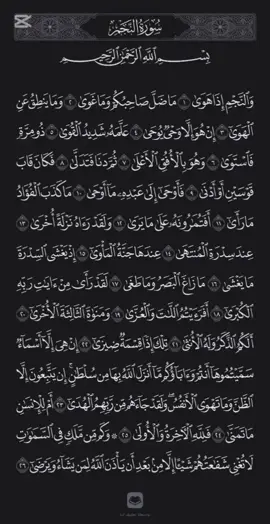 سُورَةُ النَّجۡمِ
بِسۡمِ ٱللَّهِ ٱلرَّحۡمَٰنِ ٱلرَّحِيمِ
وَٱلنَّجۡمِ إِذَا هَوَىٰ ١ مَا ضَلَّ صَاحِبُكُمۡ وَمَا غَوَىٰ ٢ وَمَا يَنطِقُ عَنِ
ٱلۡهَوَىٰٓ ٣ إِنۡ هُوَ إِلَّا وَحۡيٞ يُوحَىٰ ٤ عَلَّمَهُۥ شَدِيدُ ٱلۡقُوَىٰ ٥ ذُو مِرَّةٖ
فَٱسۡتَوَىٰ ٦ وَهُوَ بِٱلۡأُفُقِ ٱلۡأَعۡلَىٰ ٧ ثُمَّ دَنَا فَتَدَلَّىٰ ٨ فَكَانَ قَابَ
قَوۡسَيۡنِ أَوۡ أَدۡنَىٰ ٩ فَأَوۡحَىٰٓ إِلَىٰ عَبۡدِهِۦ مَآ أَوۡحَىٰ ١٠ مَا كَذَبَ ٱلۡفُؤَادُ
مَا رَأَىٰٓ ١١ أَفَتُمَٰرُونَهُۥ عَلَىٰ مَا يَرَىٰ ١٢ وَلَقَدۡ رَءَاهُ نَزۡلَةً أُخۡرَىٰ ١٣
عِندَ سِدۡرَةِ ٱلۡمُنتَهَىٰ ١٤ عِندَهَا جَنَّةُ ٱلۡمَأۡوَىٰٓ ١٥ إِذۡ يَغۡشَى ٱلسِّدۡرَةَ
مَا يَغۡشَىٰ ١٦ مَا زَاغَ ٱلۡبَصَرُ وَمَا طَغَىٰ ١٧ لَقَدۡ رَأَىٰ مِنۡ ءَايَٰتِ رَبِّهِ
ٱلۡكُبۡرَىٰٓ ١٨ أَفَرَءَيۡتُمُ ٱللَّٰتَ وَٱلۡعُزَّىٰ ١٩ وَمَنَوٰةَ ٱلثَّالِثَةَ ٱلۡأُخۡرَىٰٓ ٢٠
أَلَكُمُ ٱلذَّكَرُ وَلَهُ ٱلۡأُنثَىٰ ٢١ تِلۡكَ إِذٗا قِسۡمَةٞ ضِيزَىٰٓ ٢٢ إِنۡ هِيَ إِلَّآ أَسۡمَآءٞ
سَمَّيۡتُمُوهَآ أَنتُمۡ وَءَابَآؤُكُم مَّآ أَنزَلَ ٱللَّهُ بِهَا مِن سُلۡطَٰنٍۚ إِن يَتَّبِعُونَ إِلَّا
ٱلظَّنَّ وَمَا تَهۡوَى ٱلۡأَنفُسُۖ وَلَقَدۡ جَآءَهُم مِّن رَّبِّهِمُ ٱلۡهُدَىٰٓ ٢٣ أَمۡ لِلۡإِنسَٰنِ
مَا تَمَنَّىٰ ٢٤ فَلِلَّهِ ٱلۡأٓخِرَةُ وَٱلۡأُولَىٰ ٢٥ ۞ وَكَم مِّن مَّلَكٖ فِي ٱلسَّمَٰوَٰتِ
لَا تُغۡنِي شَفَٰعَتُهُمۡ شَيۡـًٔا إِلَّا مِنۢ بَعۡدِ أَن يَأۡذَنَ ٱللَّهُ لِمَن يَشَآءُ وَيَرۡضَىٰٓ ٢٦